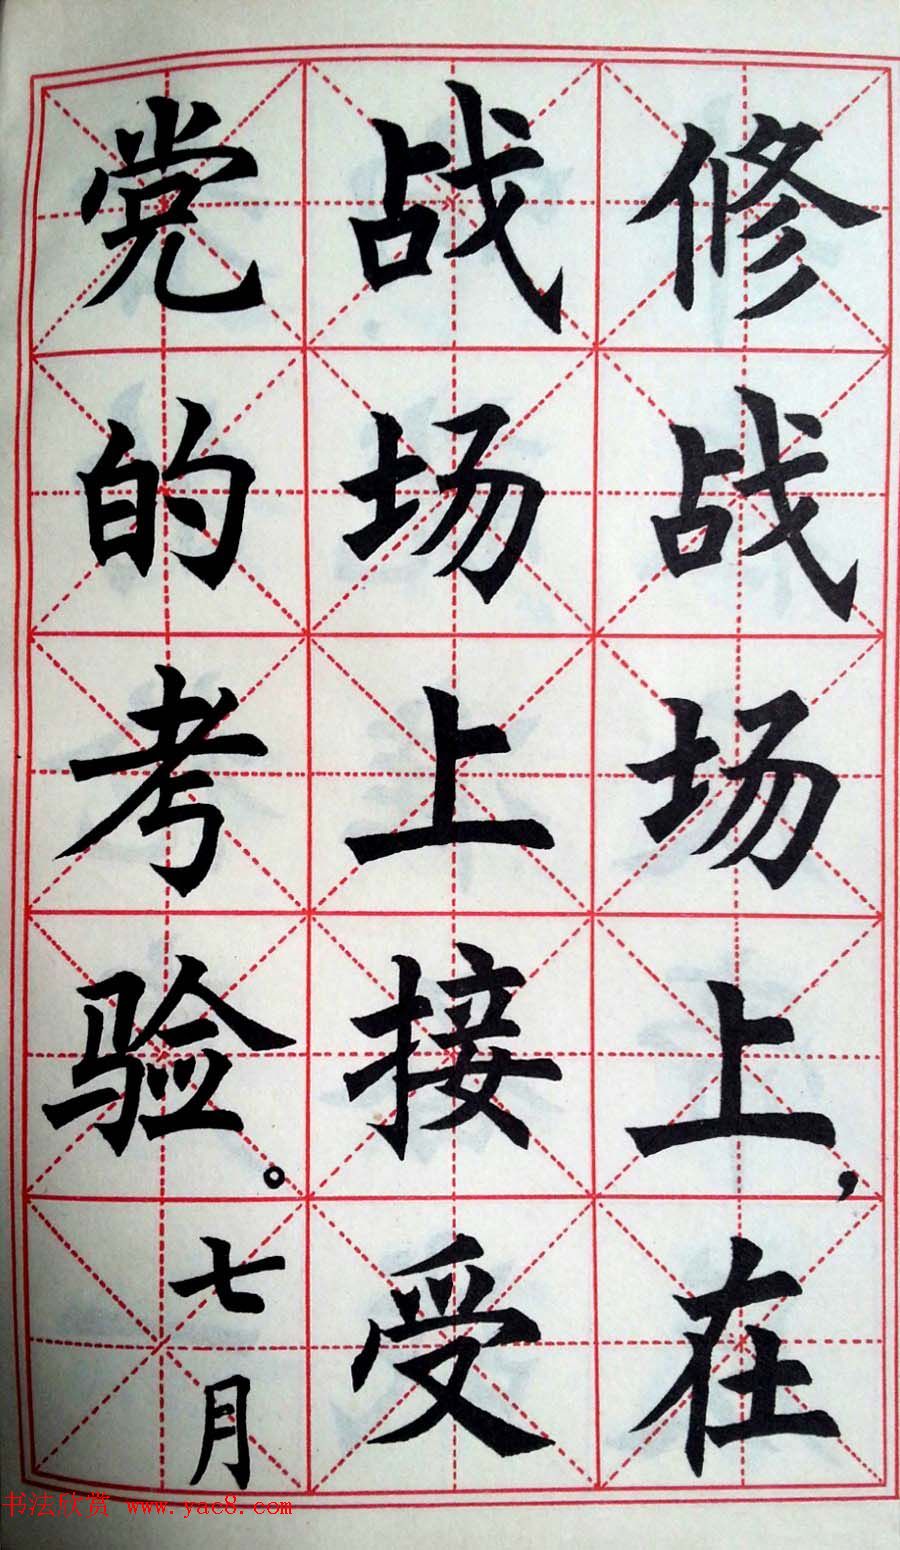 修战场上，在
战场上接受
党的考验。七月
书法欣赏 www.yac8.com